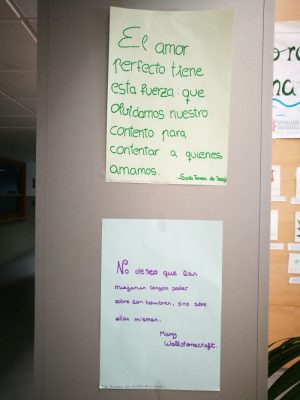 El amor
perfecto tiene
esta fuerza: que
olvidamos nuestro
contento para
contentar a quienes
amamos.
Santa Teresa de Jesús
No deseo que las
mujeres tengan poder
sobre los hombres, sino sobre
ellas mismas.
Mary
Wollstonecraft.
GENERALITAT
VALENCIANA